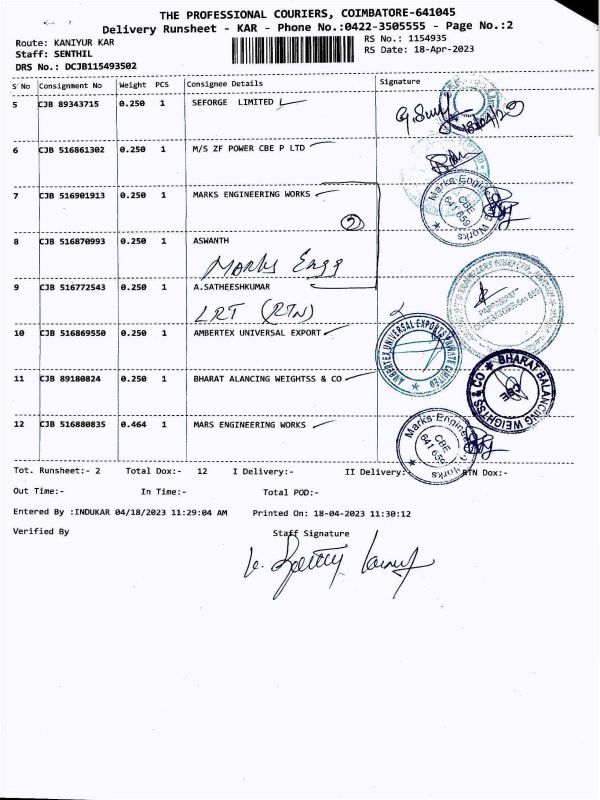 THE PROFESSIONAL COURIERS, COIMBATORE-641045
Delivery Runsheet - KAR - Phone No.:0422-3505555 - Page No.:2
Route: KANIYUR KAR
RS No.: 1154935
Staff: SENTHIL
RS Date: 18-Apr-2023
DRS No.: DCJB115493502
S No Consignment No Weight PCS Consignee Details Signature
5 CJB 89343715 0.250 1 SEFORGE LIMITED
6 CJB 516861302 0.250 1 M/S ZF POWER CBE P LTD
7 CJB 516901913 0.250 1 MARKS ENGINEERING WORKS
2
8 CJB 516870993 0.250 1 ASWANTH
Marks Engg
9 CJB 516772543 0.250 1 A.SATHEESHKUMAR
LRT (RTN)
10 CJB 516869550 0.250 1 AMBERTEX UNIVERSAL EXPORT
11 CJB 89180824 0.250 1 BHARAT ALANCING WEIGHTSS & CO
12 CJB 516880835 0.464 1 MARS ENGINEERING WORKS
Marks Engineering Works
CBE
641 659
AMBERTEX UNIVERSAL EXPORTS PRIVATE LIMITED
BHARAT BALANCING WEIGHTSS & CO
CBE
Marks Engineering Works
CBE
641 659
Tot. Runsheet:- 2 Total Dox:- 12 I Delivery:- II Delivery:- RTN Dox:-
Out Time:- In Time:- Total POD:-
Entered By :INDUKAR 04/18/2023 11:29:04 AM Printed On: 18-04-2023 11:30:12
Verified By Staff Signature